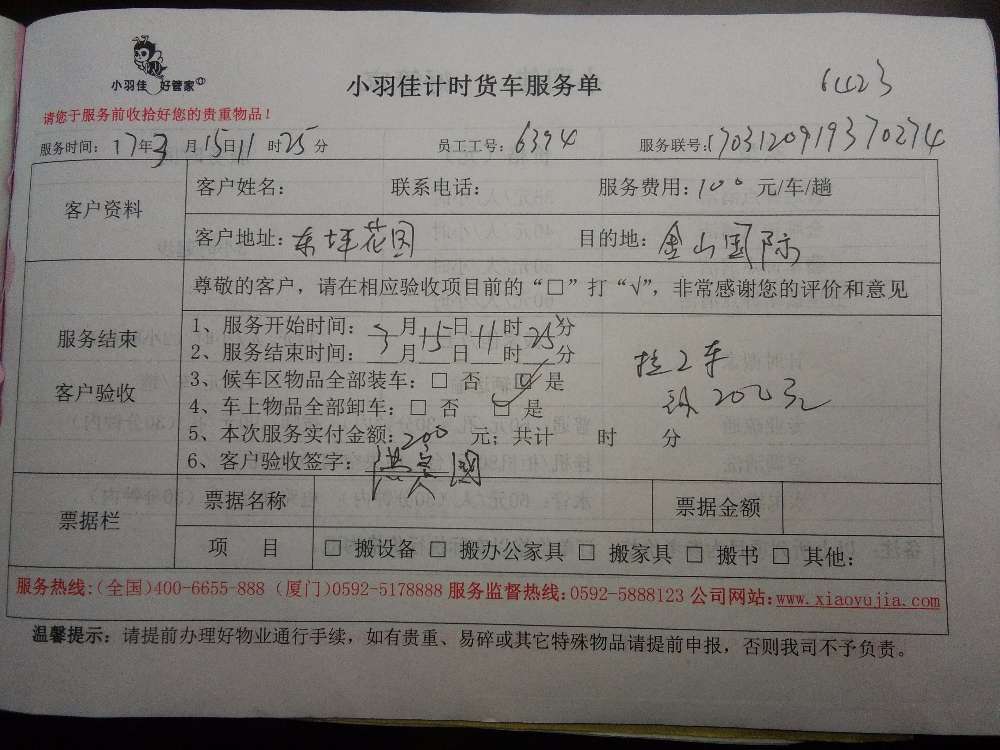 小羽佳 好管家
小羽佳计时货车服务单
6423
请您于服务前收拾好您的贵重物品！
服务时间：17年3月15日11时25分 员工工号：6394 服务联号：1703120919370274
客户资料
客户姓名： 联系电话： 服务费用：100 元/车/趟
客户地址：东坪花园 目的地：金山国际
服务结束
客户验收
尊敬的客户，请在相应验收项目前的“□”打“√”，非常感谢您的评价和意见
1、服务开始时间：3月15日11时25分
2、服务结束时间：___月___日___时___分
3、候车区物品全部装车：□ 否 □ 是
4、车上物品全部卸车：□ 否 □ 是
5、本次服务实付金额：200 元；共计 时 分
6、客户验收签字：
2车
200元
票据栏
票据名称 票据金额
项 目 □ 搬设备 □ 搬办公家具 □ 搬家具 □ 搬书 □ 其他：
服务热线：(全国)400-6655-888 (厦门)0592-5178888 服务监督热线：0592-5888123 公司网站：www.xiaoyujia.com
温馨提示：请提前办理好物业通行手续，如有贵重、易碎或其它特殊物品请提前申报，否则我司不予负责。